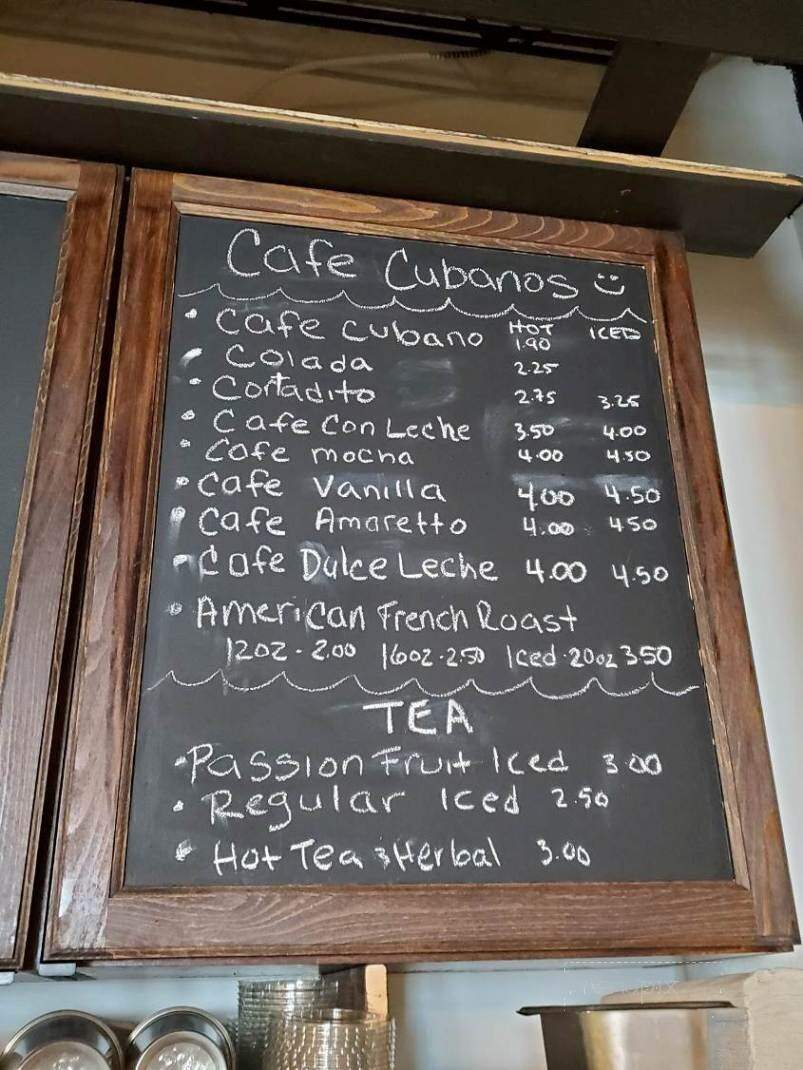 Cafe Cubanos
HOT ICED
• Cafe Cubano 1.90
Colada 2.25
• Cortadito 2.75 3.25
• Cafe Con Leche 3.50 4.00
• Cafe mocha 4.00 4.50
• Cafe Vanilla 4.00 4.50
• Cafe Amaretto 4.00 450
• Cafe Dulce Leche 4.00 4.50
• American French Roast
12oz - 2.00 16oz - 2.50 Iced - 20oz 3.50
TEA
• Passion Fruit Iced 3.00
• Regular Iced 2.50
• Hot Tea & Herbal 3.00